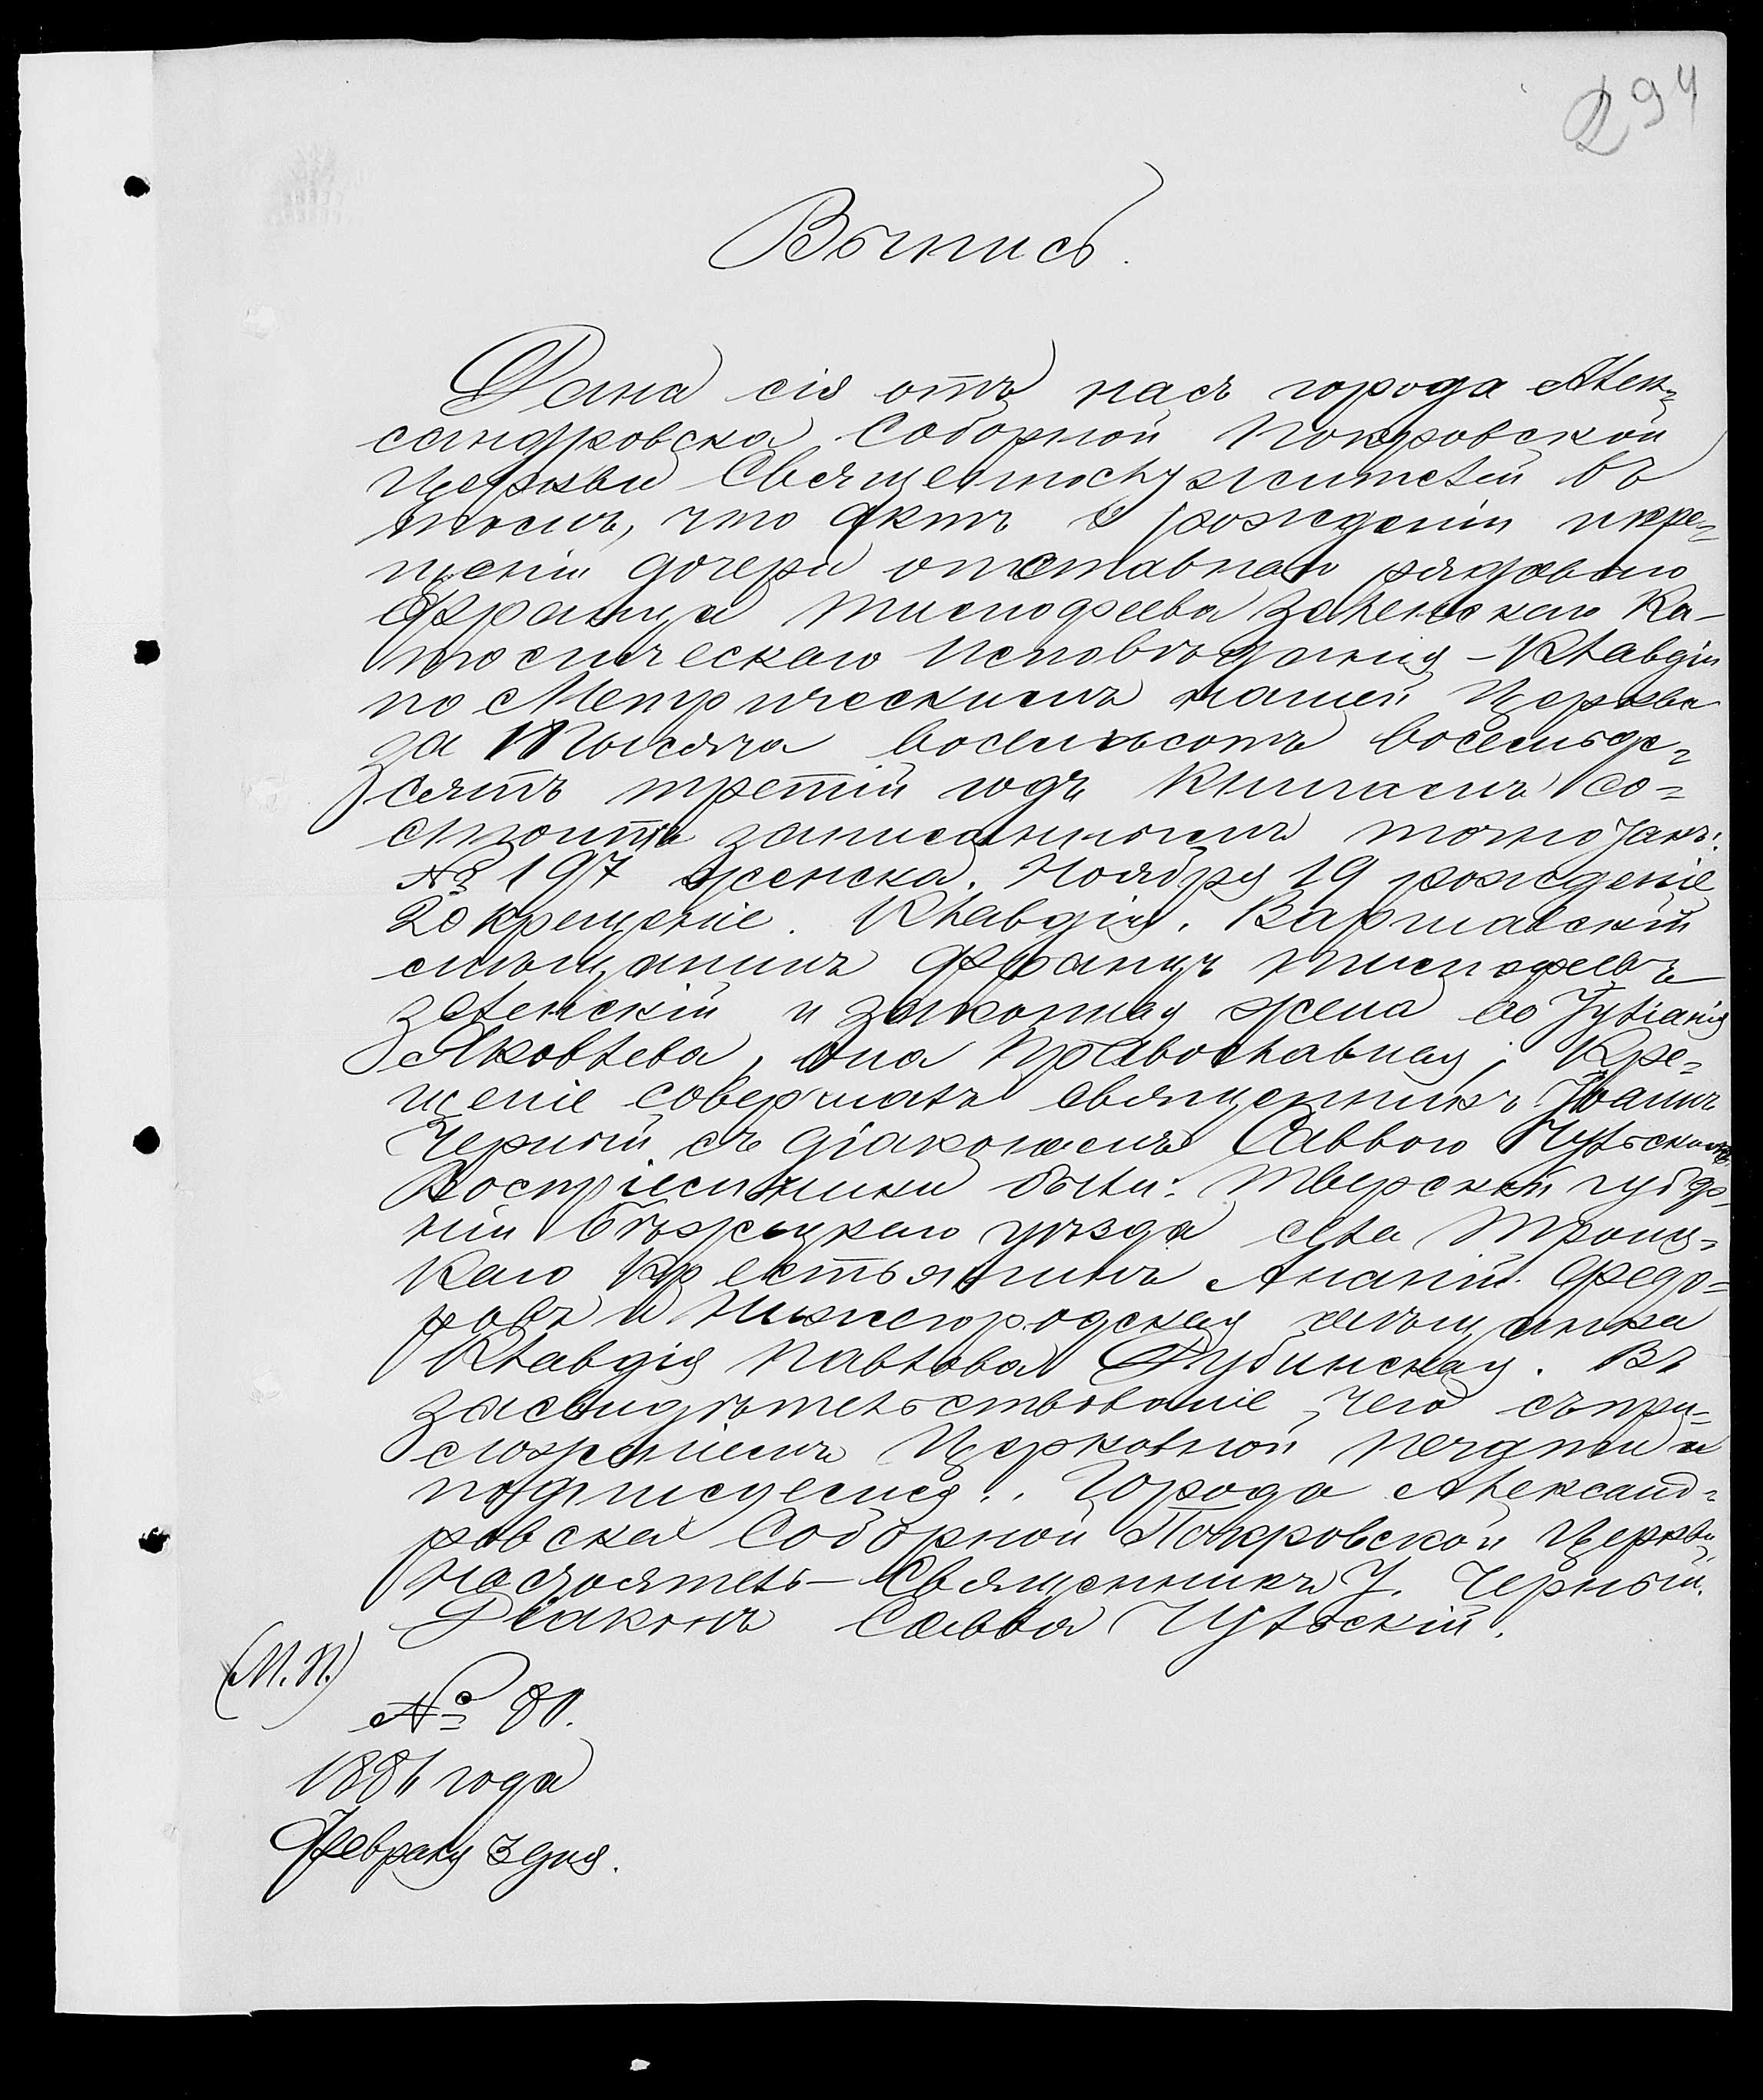 294
Выпись.
Дана сія отъ насъ города Алек=
сандровска Соборной Покровской
Церкви Священнослужителей въ
томъ, что актъ о рожденіи и кре=
щеніи дочери отставнаго рядоваго
Франца Тимофеева Зеленскаго Ка-
толическаго исповѣданія – Клавдіи
по Метрическимъ нашей Церкви
за Тысяча восемьсотъ восемьде=
сятъ третій годъ книгамъ со=
стоитъ записаннымъ точно такъ:
№ 197 женска. Ноября 19 рожденіе
20 крещеніе. Клавдія. Варшавскій
мѣщанинъ Францъ Тимофеевъ
Зеленскій и законная жена его Іуліанія
Яковлева, она Православная; Кре=
щеніе совершалъ священникъ Іоаннъ
Черный съ діакономъ Саввою Чульскимъ.
Воспріемники были: Тверской губер=
ніи Бѣжецкаго уѣзда села Троиц=
каго крестьянинъ Ананій Федо=
ровъ и Нижегородская мѣщанка
Клавдія Павлова Слубинская. Въ
засвидѣтельствованіе чего съ при=
ложеніемъ Церковной печати и
подписуемся.. Города Александ=
ровска Соборной Покровской Церкви,
Настоятель – Священникъ І. Черный.
Діаконъ Савва Чульскій.
(М.П.)
№ 80.
188 года
Февраля 3 дня.